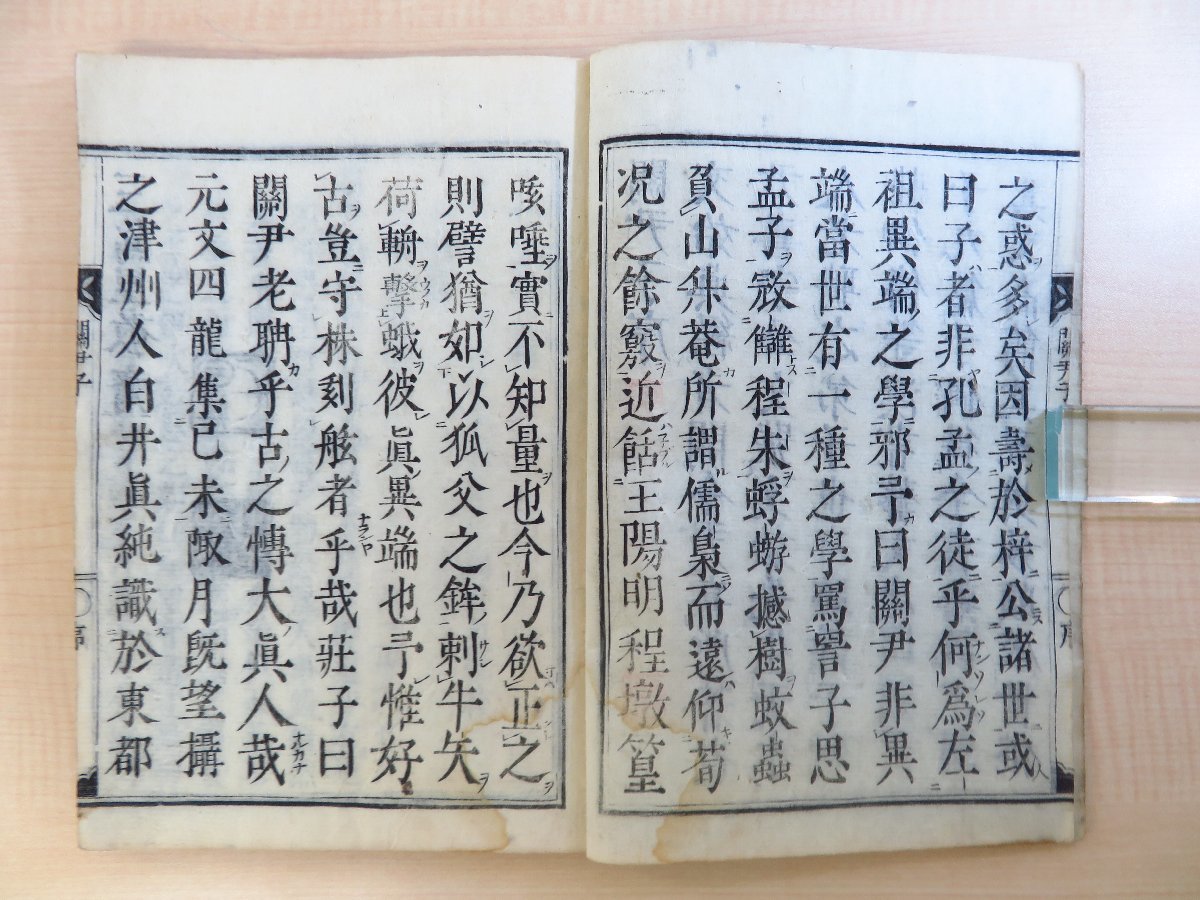 之惑多矣因壽於梓公諸世或
曰子者非孔孟之徒乎何爲左
祖異端之學邪予曰關尹非異
端當世有一種之學罵詈子思
孟子敓讎程朱蜉蝣撼樹蚊蟲
負山升菴所謂儒梟而遠仰荀
况之餘竅近餂王陽明程墩篁
咳唾實不知量也今乃欲正之
則譬猶如以狐父之鉾刺牛矢
荷擊蛾彼眞異端也予惟好
古豈守株刻舷者乎哉莊子曰
關尹老聃乎古之博大眞人哉
元文四龍集己未陬月既望攝
之津州人白井眞純識於東都
關尹子
序